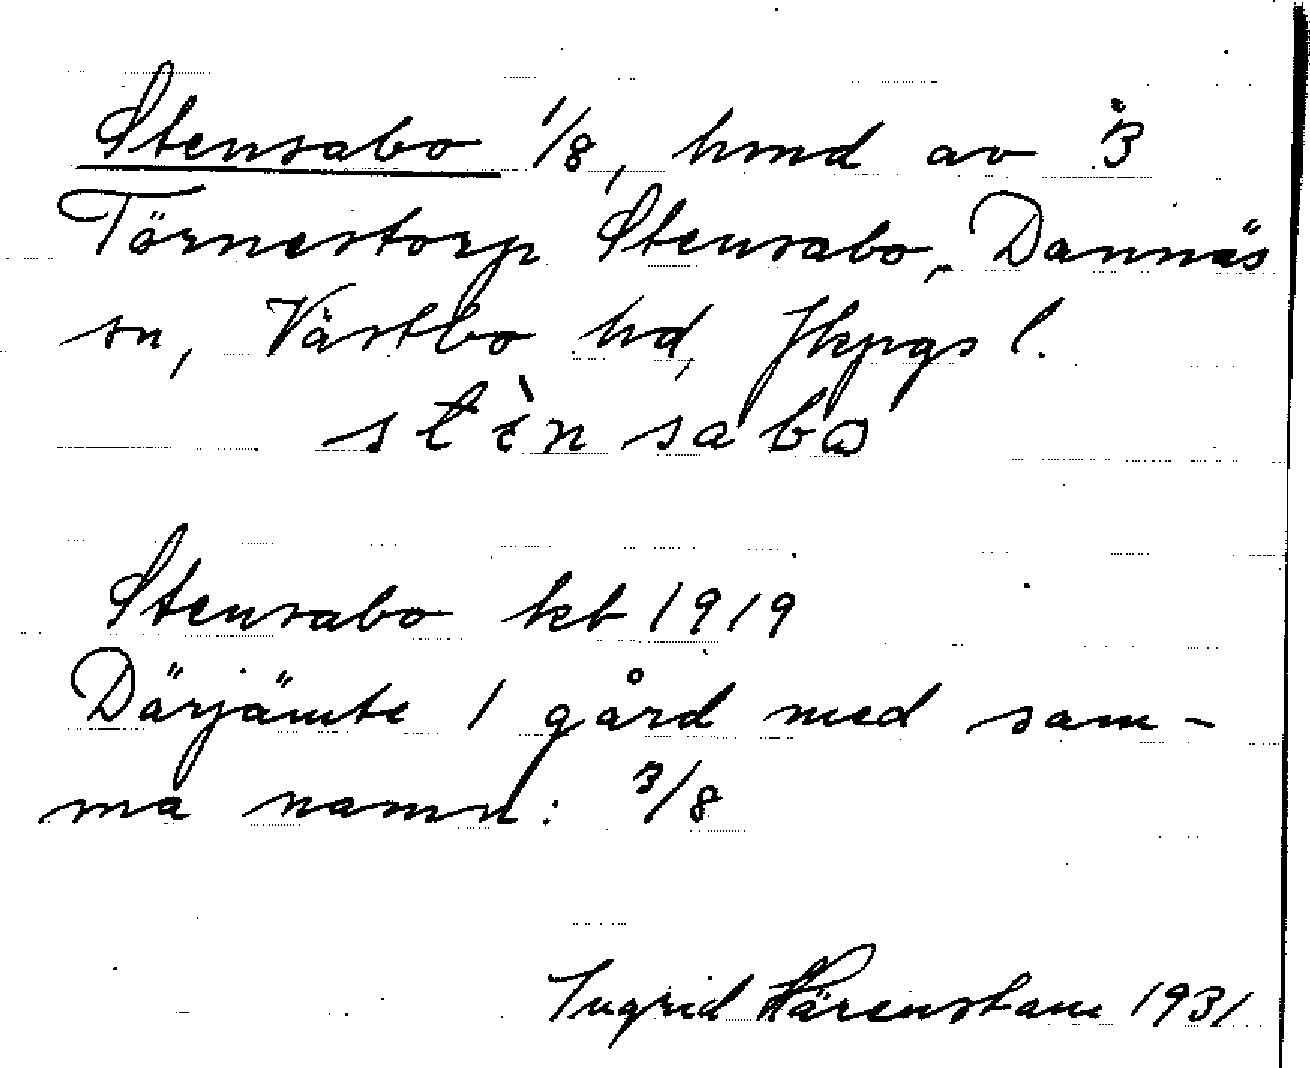 Stensabo 1/8, hmd av 3
Törnestorp Stensabo, Dannäs
sn, Västbo hd, Jkpgs l.
stènsabω
Stensabo kb 1919
Därjämte 1 gård med sam-
ma namn: 3/8
Ingrid Härenstam 1931